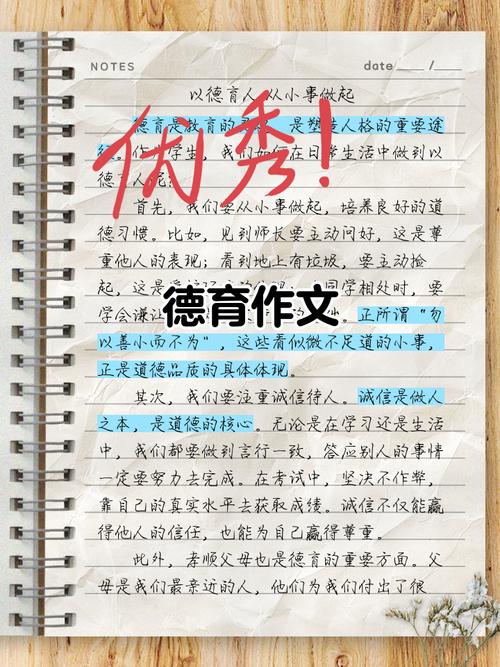 NOTES
date
以德育人 从小事做起
优秀!
德育是教育的 是塑 人格的重要途
作 学生,我们如何在日常生活中做到以
德
首先,我们要从小事做起,培养良好的道
德习惯。比如,见到师长要主动问好,这是尊
重他人的表现;看到地上有垃圾,要主动捡
起,这是 同学相处时,要
学会谦 正所谓“勿
德育作文
以善小而不为”,这些看似微不足道的小事,
正是道德品质的具体体现。
其次,我们要注重诚信待人。诚信是做人
之本,是道德的核心。无论是在学习还是生活
中,我们都要做到言行一致,答应别人的事情
一定要努力去完成。在考试中,坚决不作弊,
靠自己的真实水平去获取成绩。诚信不仅能赢
得他人的信任,也能为自己赢得尊重。
此外,孝顺父母也是德育的重要方面。父
母是我们最亲近的人,他们为我们付出了很